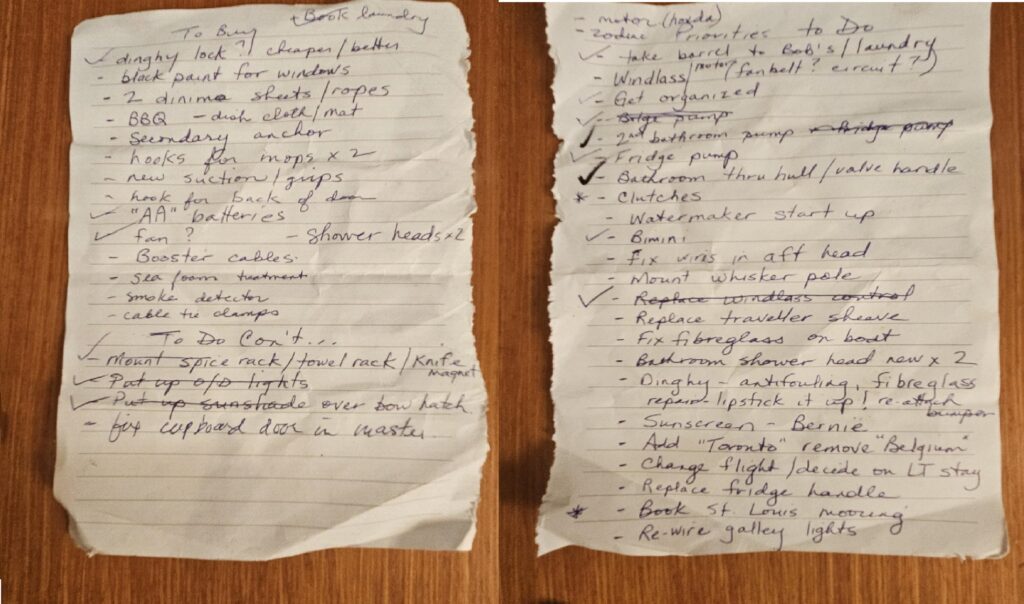 + Book laundry
To Buy
✓ dinghy lock?! cheaper/better
- black paint for windows
- 2 dinima sheets/ropes
- BBQ - dish cloth/mat
- Secondary anchor
- hooks for mops x 2
- new suction/grips
- hook for back of door
✓ - "AA" batteries
✓ - fan ? - Shower heads x2
- Booster cables
- Sea foam treatment
- smoke detector
- cable tie clamps
To Do Con't...
✓ - Mount spice rack/towel rack/Knife magnet
✓ - Put up o/D lights
✓ - Put up sunshade over bow hatch
- fix cupboard door in master
- motor (honda)
- Zodiac Priorities to Do
✓ - take barrel to Bob's/laundry
- Windlass/motor (fanbelt? circuit?)
✓ - Get organized
✓ - Bilge pump
✓ - 2nd bathroom pump - Fridge pump
✓ - Fridge pump
✓ - Bathroom thru hull/valve handle
* - Clutches
- Watermaker start up
✓ - Bimini
- Fix wires in aft head
- Mount whisker pole
✓ - Replace windlass control
- Replace traveller sheave
- Fix fibreglass on boat
- Bathroom shower head new x 2
- Dinghy - antifouling, fibreglass
repair - lipstick it up! re-attach bumper
- Sunscreen - Bernie
- Add "Toronto" remove "Belgium"
- Change flight/decide on LT stay
- Replace fridge handle
* - Book St. Louis mooring
- Re-wire galley lights